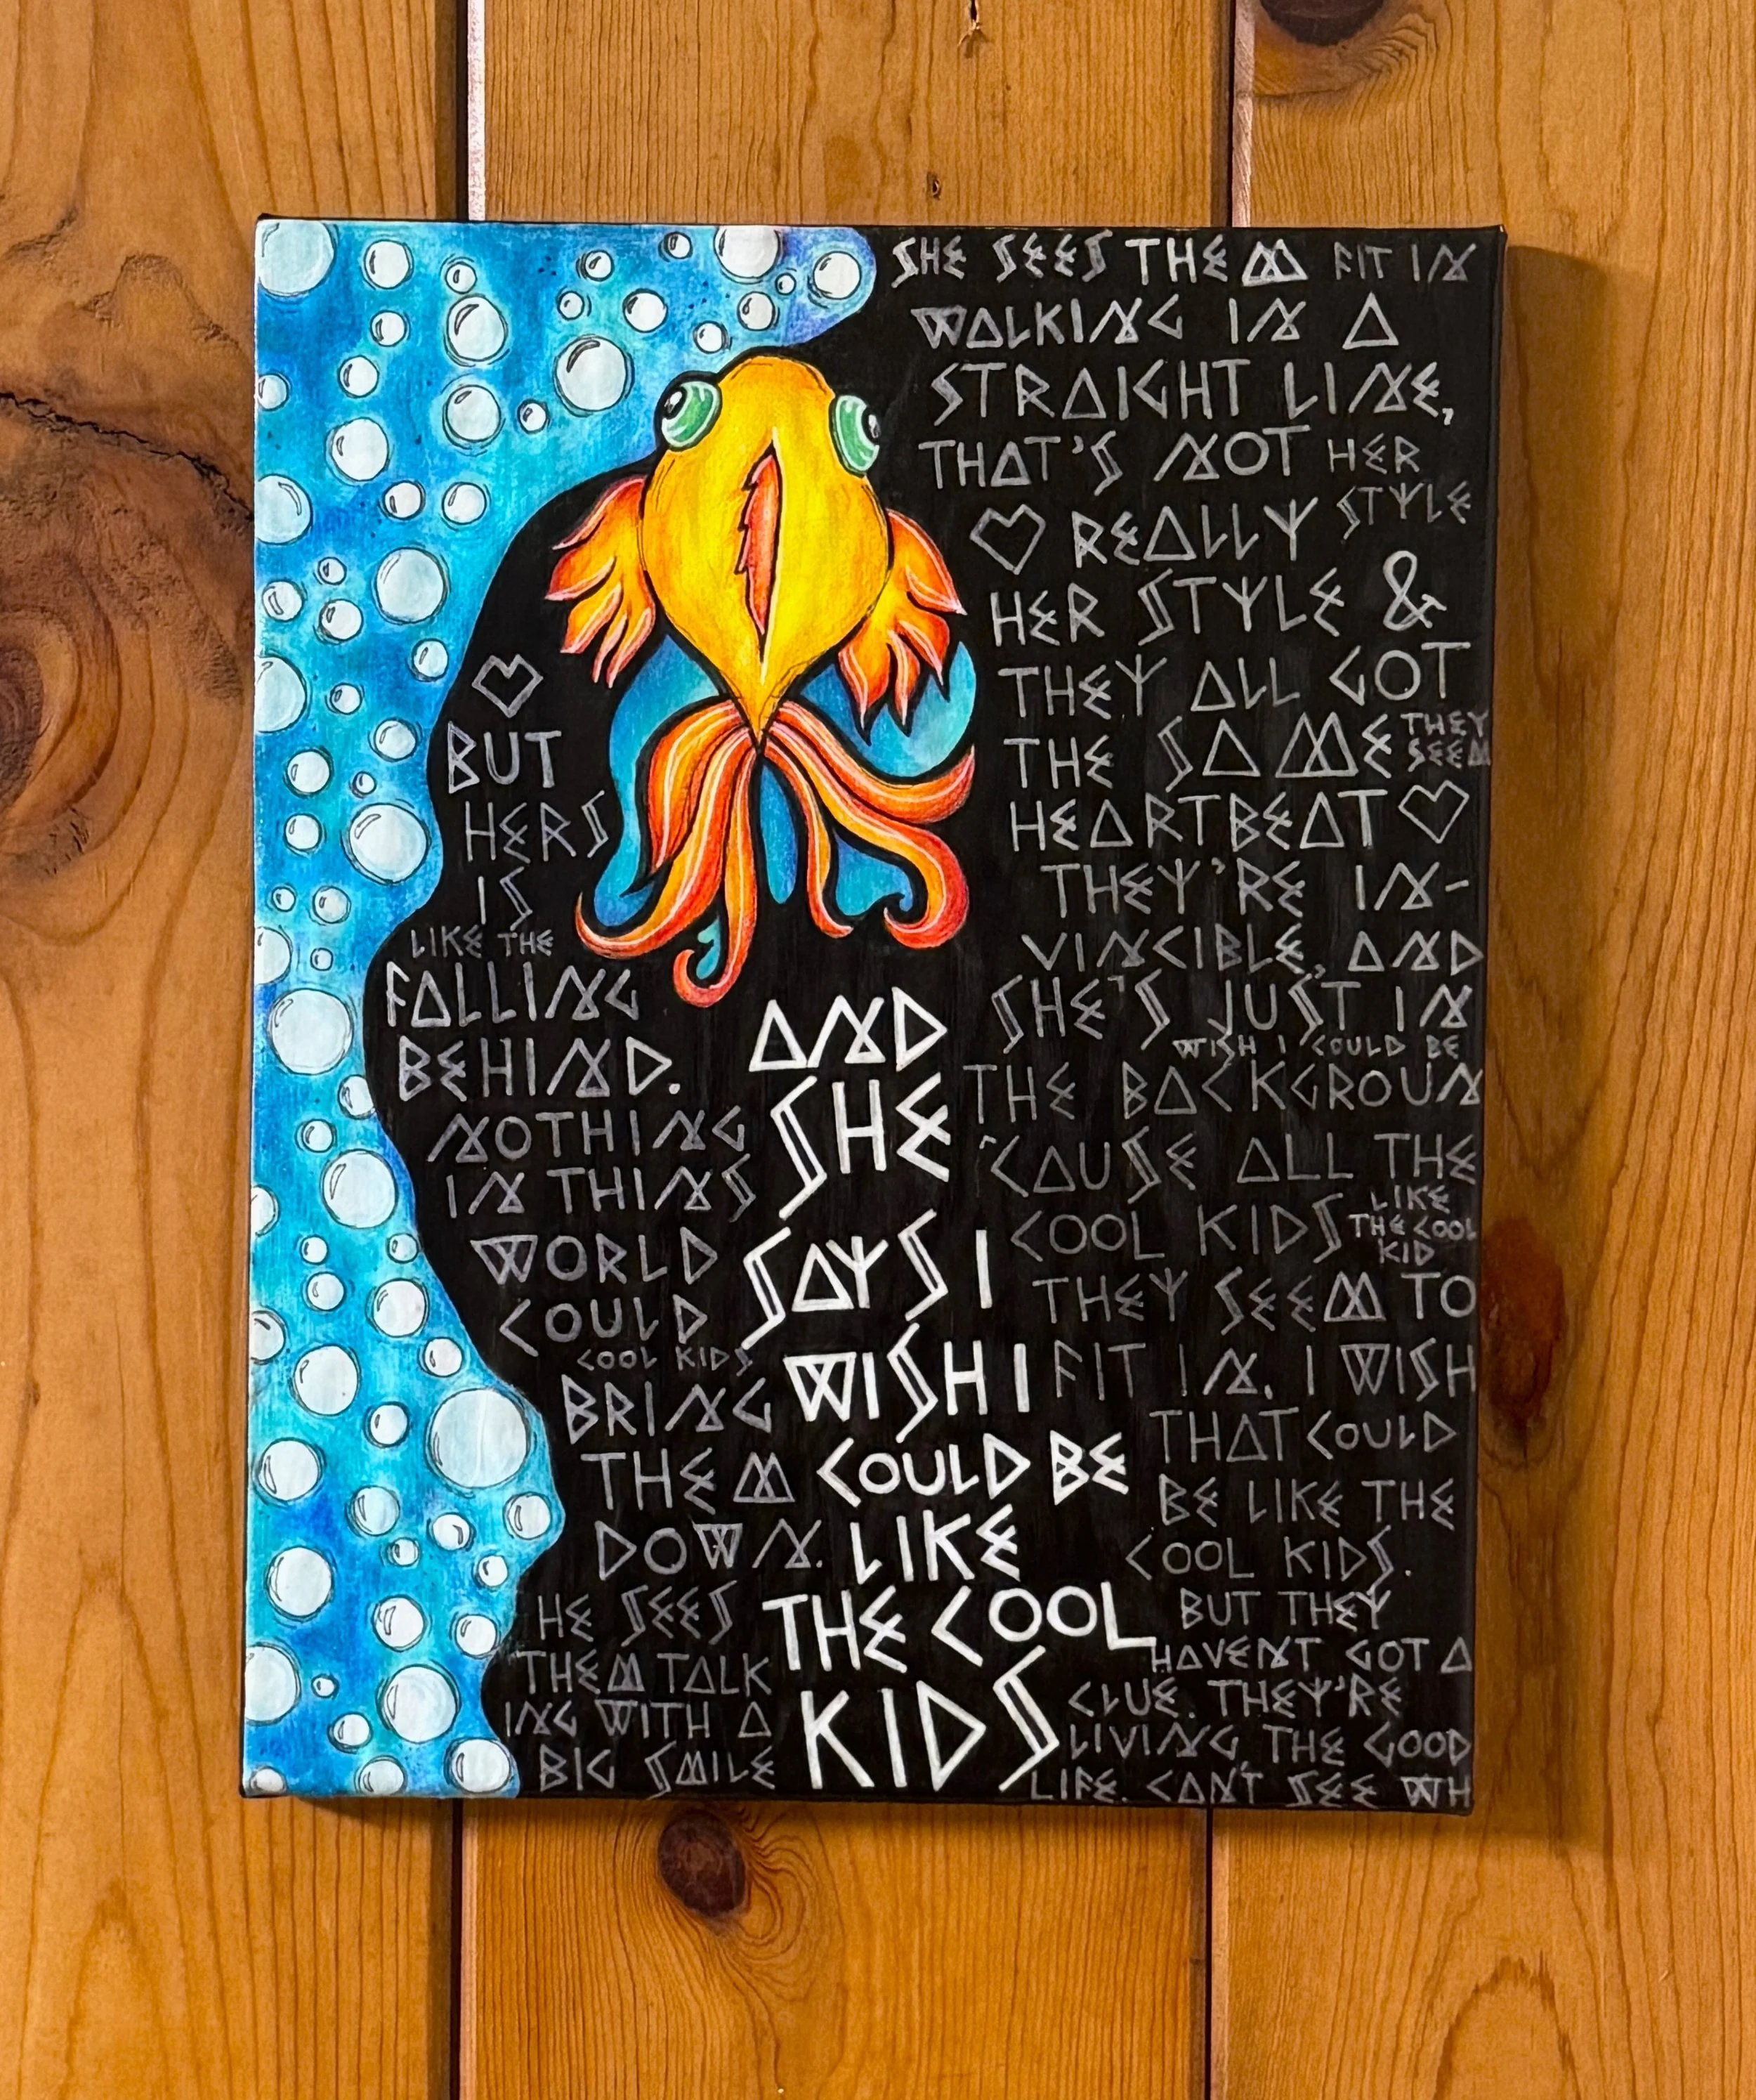 SHE SEES THEM FIT IN
WALKING IN A
STRAIGHT LINE,
THAT'S NOT HER
STYLE
REALLY
HER STYLE &
THEY ALL GOT
THE SAME
THEY
SEEM
HEARTBEAT
THEY'RE IN-
VINCIBLE, AND
SHE'S JUST IN
WISH I COULD BE
THE BACKGROUN
'CAUSE ALL THE
COOL KIDS
LIKE
THE COOL
KID
THEY SEEM TO
FIT IN. I WISH
THAT COULD
BE LIKE THE
COOL KIDS.
BUT THEY
HAVENT GOT A
CLUE. THEY'RE
LIVING, THE GOOD
LIFE. CAN'T SEE WH
BUT
HERS
IS
LIKE THE
FALLING
BEHIND.
NOTHING
IN THINS
WORLD
COULD
COOL KIDS
BRING
THEM
DOWN.
HE SEES
THEM TALK
ING WITH A
BIG SMILE
AND
SHE
SAYS I
WISH I
COULD BE
LIKE
THE COOL
KIDS